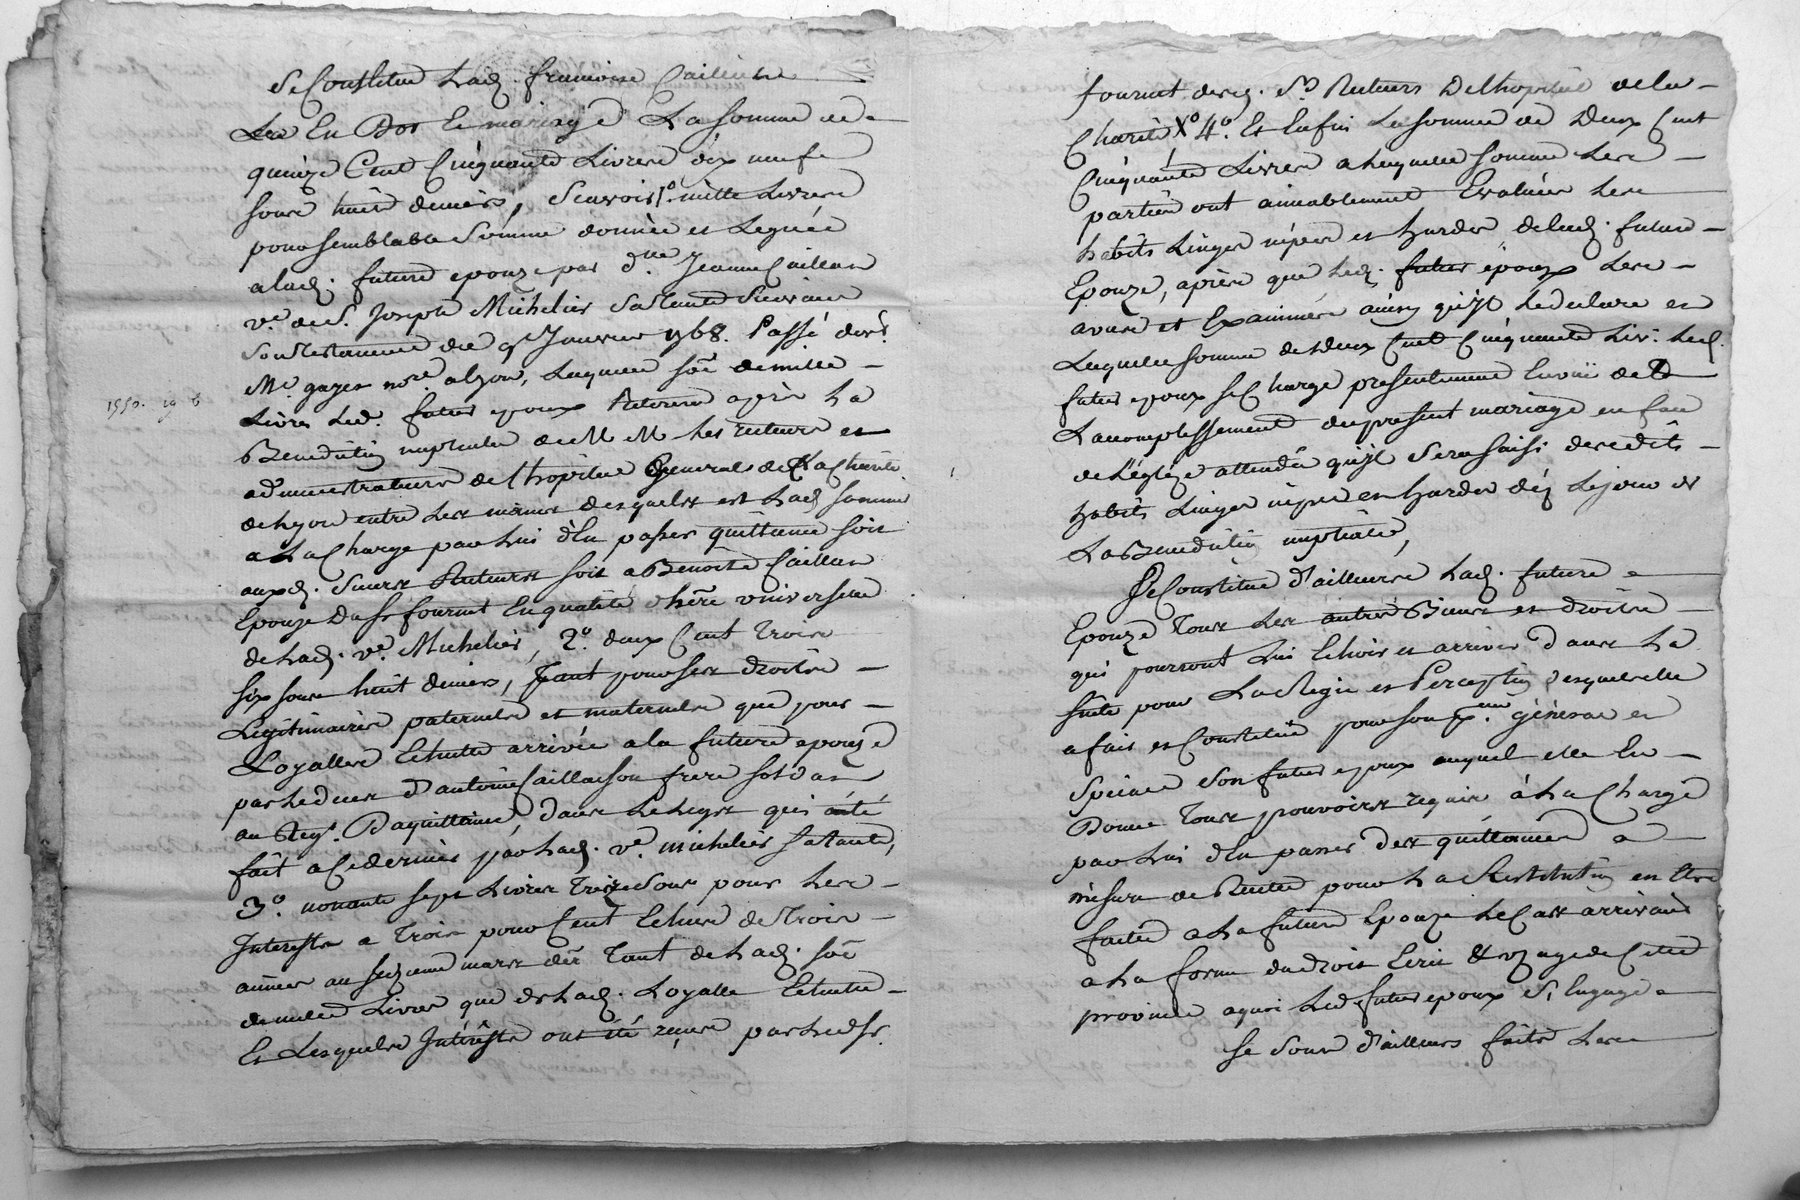 Se Constitue Lad. francoise Caillas
En Dot Et mariage La somme de
quinze Cent Cinquante Livres dix neufs
sous huit deniers, Scavoir 1º. mille Livres
pour semblable Somme donnée et Leguée
alad. future epouze par dlle. Jeanne Caillas
ve. de S. Joseph Michelier Sa tante Suivant
Son testament du 9e Janvier 1768. Passé devt.
Me. gayet nore. alyon, Laquelle somē de mille
1550. 19 8
Livres Led. futur epoux Retirera après La
Benediction nuptiale de M M Les recteurs et
administrateurs de Lhopital General de La Charité
de Lyon entre Les mains desquels est Lad somme
a La Charge par Lui d'En passer quittance soit
auxd. Sieurs Recteurs soit a Benoite Caillas
Epouze Du Sr fournit En qualité d'hére. universelle
de Lad. ve. Michelier, 2º. deux Cent Trois
six sous huit deniers, Tant pour ses droits
Legitimaires paternels et maternels que pour
Loyalle Echutte arrivée a la future epouze
par Le deces d'antoine Caillas son frere soldat
au Regt. Daquittaine, dans Le Legs qui a été
fait a Ce dernier par Lad. ve. michelier sa tante,
3º. nonante sept Livres Treize Sous pour Les
Interests a Trois pour Cent Echus de Trois
années au seizieme mars der Tant de Lad. somē
de mille Livres que de Lad. Loyalle Echutte
Et Lesquels Intérêsts ont été reçus par Led Sr.
fournit desd. Srs Recteurs De Lhopital de La
Charité, 4º. Et Enfin La somme de Deux Cent
Cinquante Livres a Laquelle somme Les
parties ont aimablement Evaluées Les
habits Linges nipes et hardes de Lad. future
Epouze, après que Led. futur epoux Les a
avuer et Examinés ainsy qu'jl Le declare et
Laquelle somme de Deux Cent Cinquante Liv. Led.
futur epoux se Charge presentement En vüe de
L'accomplissement du present mariage en face
de L'églize attendu qu'jl Sera saisi desdits
habits Linges nipes et hardes dez Le jour de
La Benediction nuptiale,
Se Constitue d'ailleurs Lad. future
Epouze Tous Les autres Biens et droits
qui pourront Lui Echoir et arriver dans La
suite pour La Regie et Perception desquels elle
a fait et Constitué pour son pr. général et
Special Son futur epoux auquel elle En
Donne Tous pouvoirs requis à La Charge
par Lui d'En passer des quittances a
mesure de Recette pour La Restitution en Etre
faite a La future Epouze Le Cas arrivant
a La forme du droit Ecrit & uzage de Cette
province a quoi Led. futur epoux S'Engage
Se Sont d'ailleurs faits Les